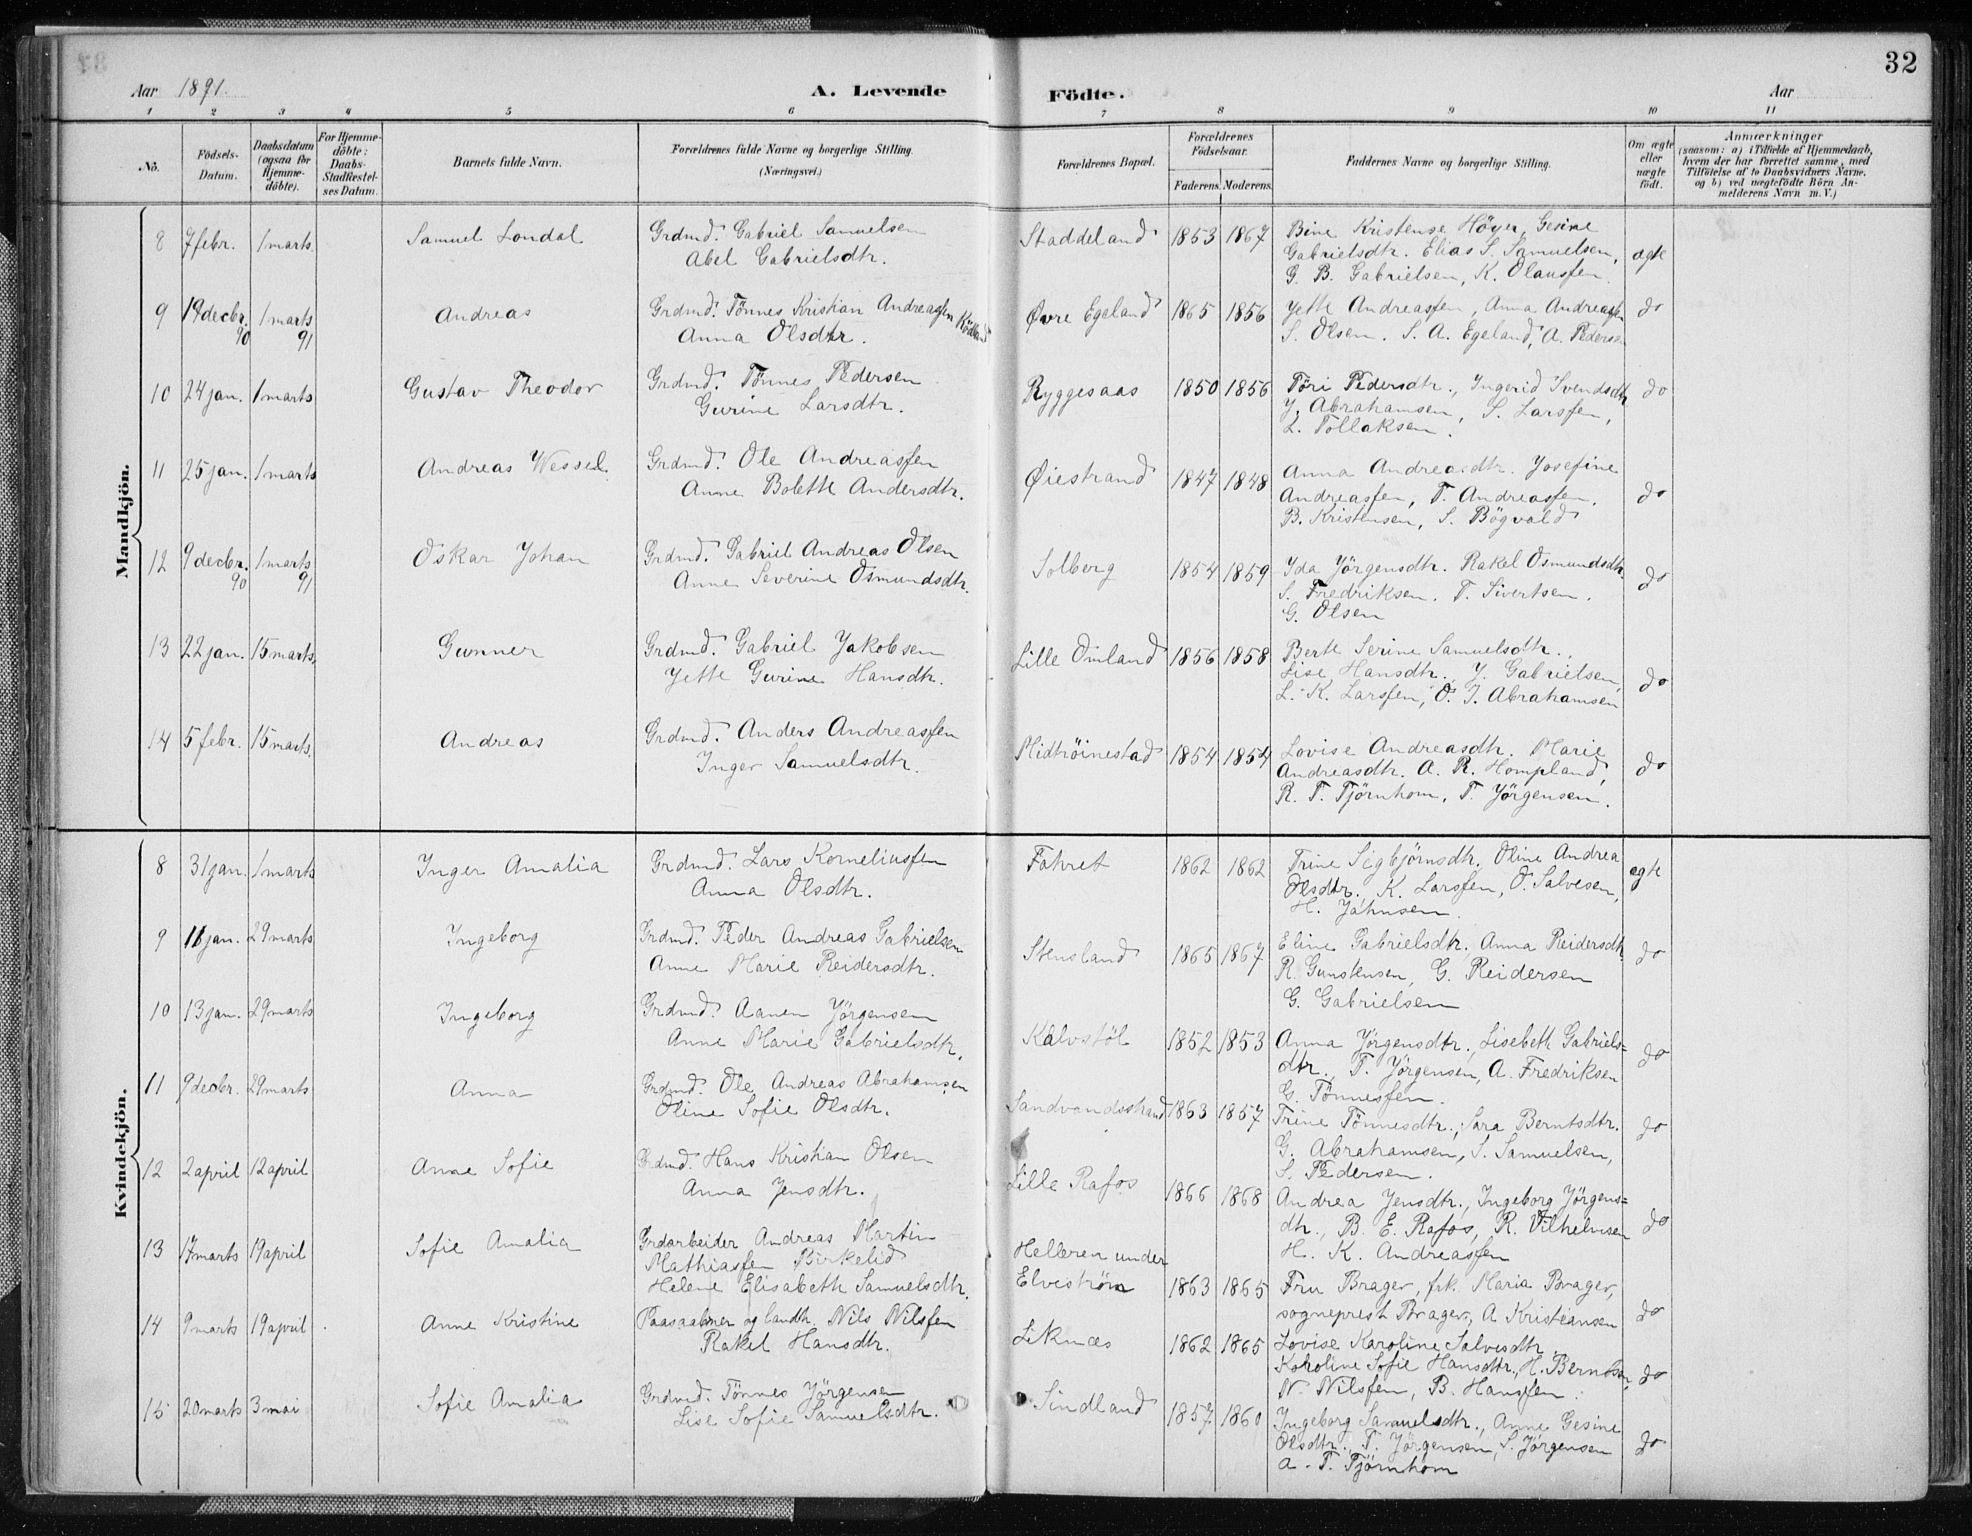 32
Aar 1891.
A. Levende Födte.
Aar
1 2 3 4 5 6 7 8 9 10 11
No.
Födsels-Datum.
Daabsdatum (ogsaa for Hjemmedöbte).
For Hjemmedöbte: Daabs-Stadfæstelses Datum.
Barnets fulde Navn.
Forældrenes fulde Navne og borgerlige Stilling. (Næringsvei.)
Forældrenes Bopæl.
Forældrenes Födselsaar. Faderens. Moderens.
Faddernes Navne og borgerlige Stilling.
Om ægte eller uægte födt.
Anmærkninger (saasom: a) i Tilfælde af Hjemmedaab, hvem der har forrettet samme, med Tilföielse af to Daabsvidners Navne, og b) ved uægtefödte Börn Anmelderens Navn m. V.)
Mandkjön.
8 7 febr. 1 marts Samuel Londal Grdmd. Gabriel Samuelsen
Abel Gabrielsdtr. Staddeland 1853 1867 Bine Kristense Höyer, Gesine
Gabrielsdtr. Elias S. Samuelsen,
G. B. Gabrielsen, K. Olausfen. ægte
9 19 decbr. 90 1 marts 91 Andreas Grdmd. Tönnes Kristian Andreasfen Ködland
Anna Olsdtr. Øvre Egeland 1865 1856 Jette Andreasfen, Anna Andreasfen
S. Olsen. S. A. Egeland, A. Pedersen do
10 24 jan. 1 marts Gustav Theodor Grdmd. Tönnes Pedersen
Gurine Larsdtr. Ryggesaas 1850 1856 Töri Pedersdtr., Ingerid Svendsdtr
J. Abrahamsen, S. Larsfen,
L. Tollaksen. do
11 25 jan. 1 marts Andreas Wessel Grdmd. Ole Andreasfen
Anne Bolette Andersdtr. Øiestrand 1847 1848 Anna Andreasdtr. Josefine
Andreasfen, T. Andreasfen,
B. Kristensen, S. Bögvald do
12 9 decbr. 90 1 marts 91 Oskar Johan Grdmd. Gabriel Andreas Olsen
Anne Severine Osmundsdtr. Solberg 1854 1859 Ida Jörgensdtr. Rakel Osmundsdtr.
S. Fredriksen. T. Sivertsen.
G. Olsen do
13 22 jan. 15 marts. Gunner Grdmd. Gabriel Jakobsen
Jette Gurine Hansdtr. Lille Omland 1856 1858 Berte Serine Samuelsdtr.,
Lise Hansdtr., J. Gabrielsen,
L. K. Larsfen, O. J. Abrahamsen do
14 5 febr. 15 marts. Andreas Grdmd. Anders Andreasfen
Inger Samuelsdtr. Midtröinestad 1854 1854 Lovise Andreasdtr. Marie
Andreasdtr. A. R. Hompland,
R. T. Tjörnhom, T. Jörgensen. do
Kvindekjön.
8 31 jan. 1 marts Inger Amalia Grdmd. Lars Korneliusfen
Anna Olsdtr. Fahret 1862 1862 Trine Sigbjörnsdtr. Oline Andrea
Olsdtr. K. Larsfen, O. Salvesen,
H. Jahnsen. ægte
9 11 jan. 29 marts Ingeborg Grdmd. Peder Andreas Gabrielsen
Anne Marie Reidersdtr. Stensland 1865 1867 Eline Gabrielsdtr. Anna Reidersdtr.
R. Gunstensen, G. Reidersen
G. Gabrielsen do
10 13 jan. 29 marts Ingeborg Grdmd. Aanen Jörgensen
Anne Marie Gabrielsdtr. Kalvstöl 1852 1853 Anna Jörgensdtr., Lisebeth Gabriels=
dtr., T. Jörgensen, A. Fredriksen
G. Tönnesfen. do
11 9 decbr. 29 marts Anna Grdmd. Ole Andreas Abrahamsen
Oline Sofie Olsdtr. Sandvandsstrand 1863 1857 Trine Tönnesdtr., Sara Berntsdtr.
G. Abrahamsen, S. Samuelsen,
S. Pedersen. do
12 2 april 12 april Anne Sofie Grdmd. Hans Kristian Olsen
Anna Jensdtr. Lille Rafos 1866 1868 Andrea Jensdtr., Ingeborg Jörgens=
dtr., B. E. Rafos, R. Vilhelmsen
H. K. Andreasfen do
13 17 marts 19 april Sofie Amalia Grdarbeider Andreas Martin
Mathiasfen Birkelid
Helene Elisabeth Samuelsdtr. Helleren under
Elveström 1863 1865 Fru Brager, frk. Maria Brager,
sogneprest Brager, A Kristeansen do
14 9 marts 19 april Anne Kristine Paasaabner og landh. Nils Nilsfen
Rakel Hansdtr. Liknæs 1862 1865 Lovise Karoline Salvesdtr.
Karoline Sofie Hansdtr, H. Berntsen,
N. Nilsfen, B. Hansfen. do
15 20 marts 3 mai Sofie Amalia Grdmd. Tönnes Jörgensen
Lise Sofie Samuelsdtr. Sindland 1857 1860 Ingeborg Samuelsdtr., Anne Gesine
Olsdtr. T. Jörgensen, S. Jörgensen
A. T. Tjörnhom do